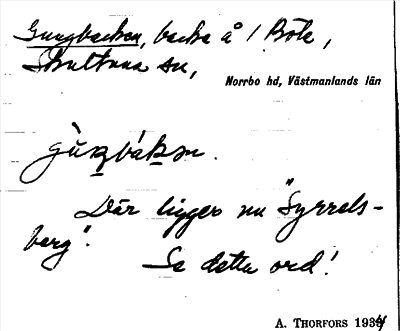 Gungbacken, backe å / Böle,
Skultuna sn,
Norrbo hd, Västmanlands län
Där ligger nu "Syrrels-
berg".
Se detta ord!
A. THORFORS 1934